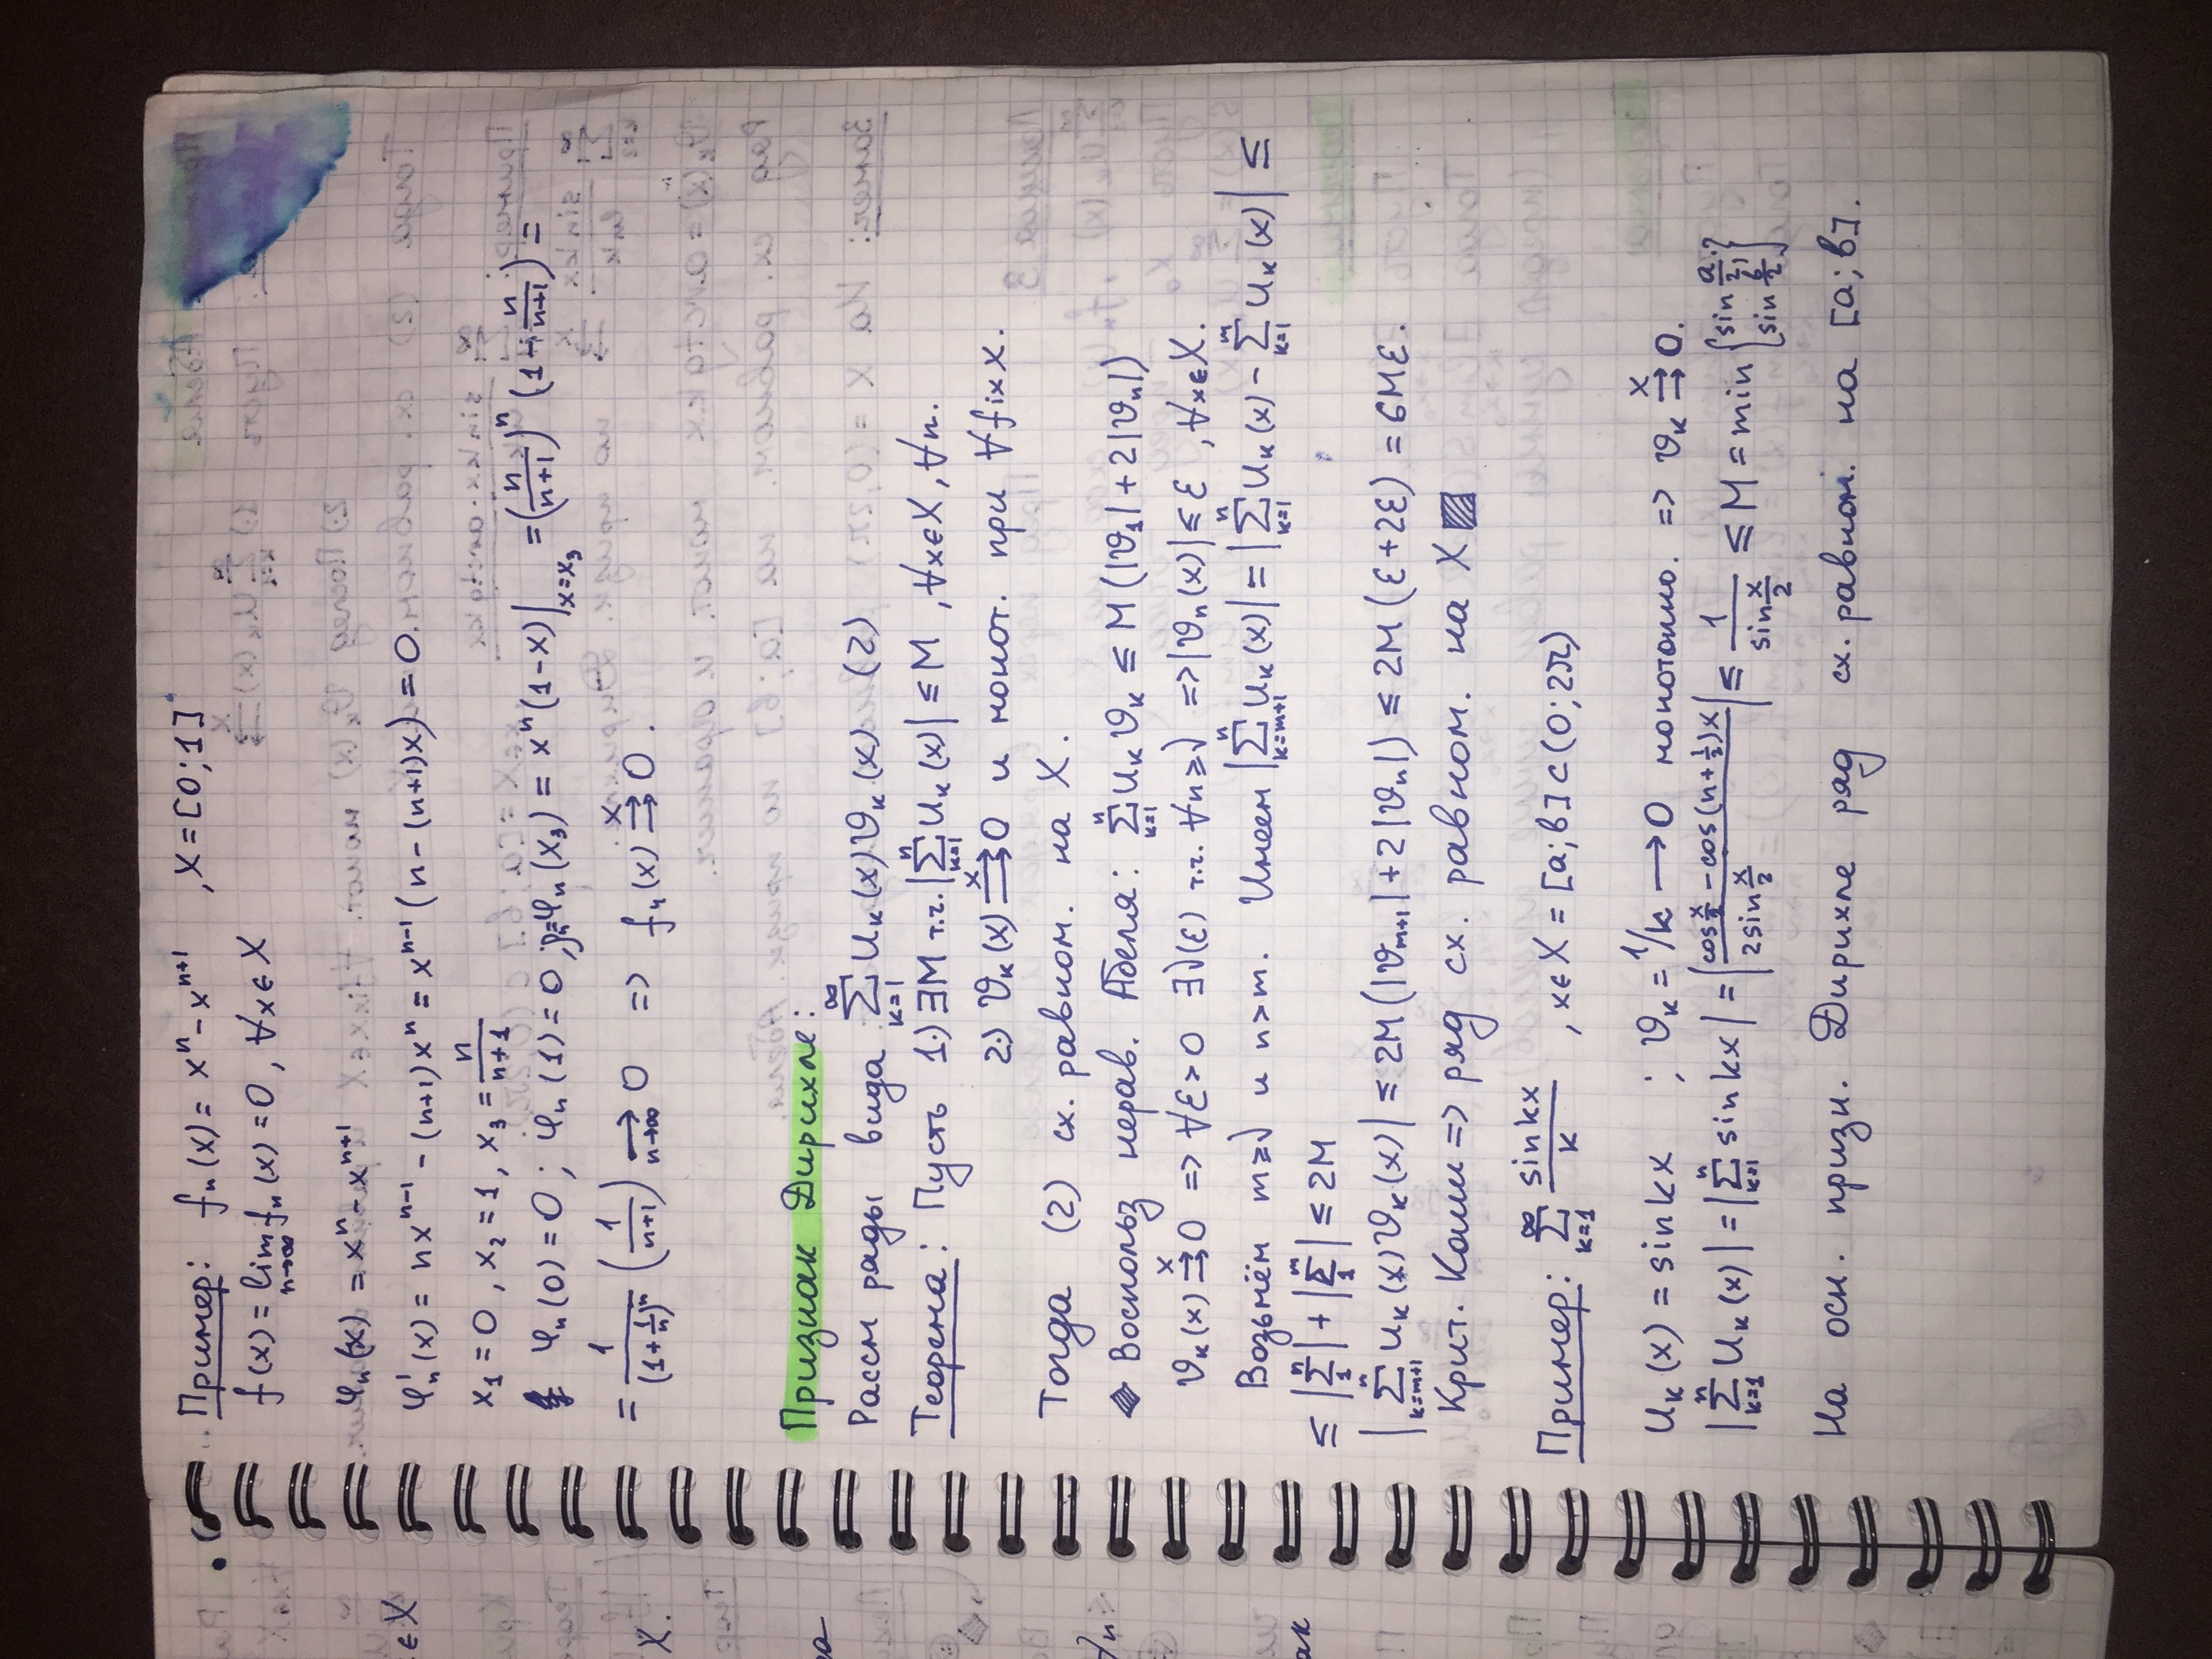 Пример: fₙ(x) = xⁿ - xⁿ⁺¹ , X = [0;1]
f(x) = lim_{n→∞} fₙ(x) = 0, ∀x∈X
φₙ(x) = xⁿ - xⁿ⁺¹
φₙ'(x) = nxⁿ⁻¹ - (n+1)xⁿ = xⁿ⁻¹(n - (n+1)x) = 0.
x₁ = 0, x₂ = 1, x₃ = n/(n+1)
φₙ(0) = 0; φₙ(1) = 0; φₙ(x₃) = xⁿ(1-x)|_{x=x₃} = (n/(n+1))ⁿ (1 - n/(n+1)) =
= 1/(1+1/n)ⁿ (1/(n+1)) →_{n→∞} 0 => fₙ(x) ⇉^X 0.
Признак Дирихле:
Рассм ряды вида ∑_{k=1}^{∞} Uₖ(x)ϑₖ(x) (2)
Теорема: Пусть 1.) ∃M т.ч. |∑_{k=1}^{n} Uₖ(x)| ≤ M, ∀x∈X, ∀n.
2.) ϑₖ(x) ⇉^X 0 и монот. при ∀fix x.
Тогда (2) сх. равном. на X.
Воспольз нерав. Абеля: ∑_{k=1}^{n} Uₖϑₖ ≤ M(|ϑ₁| + 2|ϑₙ|)
ϑₖ(x) ⇉^X 0 => ∀ε>0 ∃√(ε) т.ч. ∀n≥√ => |ϑₙ(x)| ≤ ε, ∀x∈X.
Возьмём m≥√ и n>m. Имеем |∑_{k=m+1}^{n} Uₖ(x)| = |∑_{k=1}^{n} Uₖ(x) - ∑_{k=1}^{m} Uₖ(x)| ≤
≤ |∑_{1}^{n}| + |∑_{1}^{m}| ≤ 2M
|∑_{k=m+1}^{n} Uₖ(x)ϑₖ(x)| ≤ 2M(|ϑₘ₊₁| + 2|ϑₙ|) ≤ 2M(ε+2ε) = 6Mε.
Крит. Коши => ряд сх. равном. на X
Пример: ∑_{k=1}^{∞} sin kx / k , x∈X = [a;b] ⊂ (0;2π)
Uₖ(x) = sin kx ; ϑₖ = 1/k → 0 монотонно. => ϑₖ ⇉^X 0.
|∑_{k=1}^{n} Uₖ(x)| = |∑_{k=1}^{n} sin kx| = |(cos x/2 - cos(n+1/2)x) / (2sin x/2)| ≤ 1/(sin x/2) ≤ M = min{sin a/2; sin b/2}
На осн. призн. Дирихле ряд сх. равном. на [a;b].